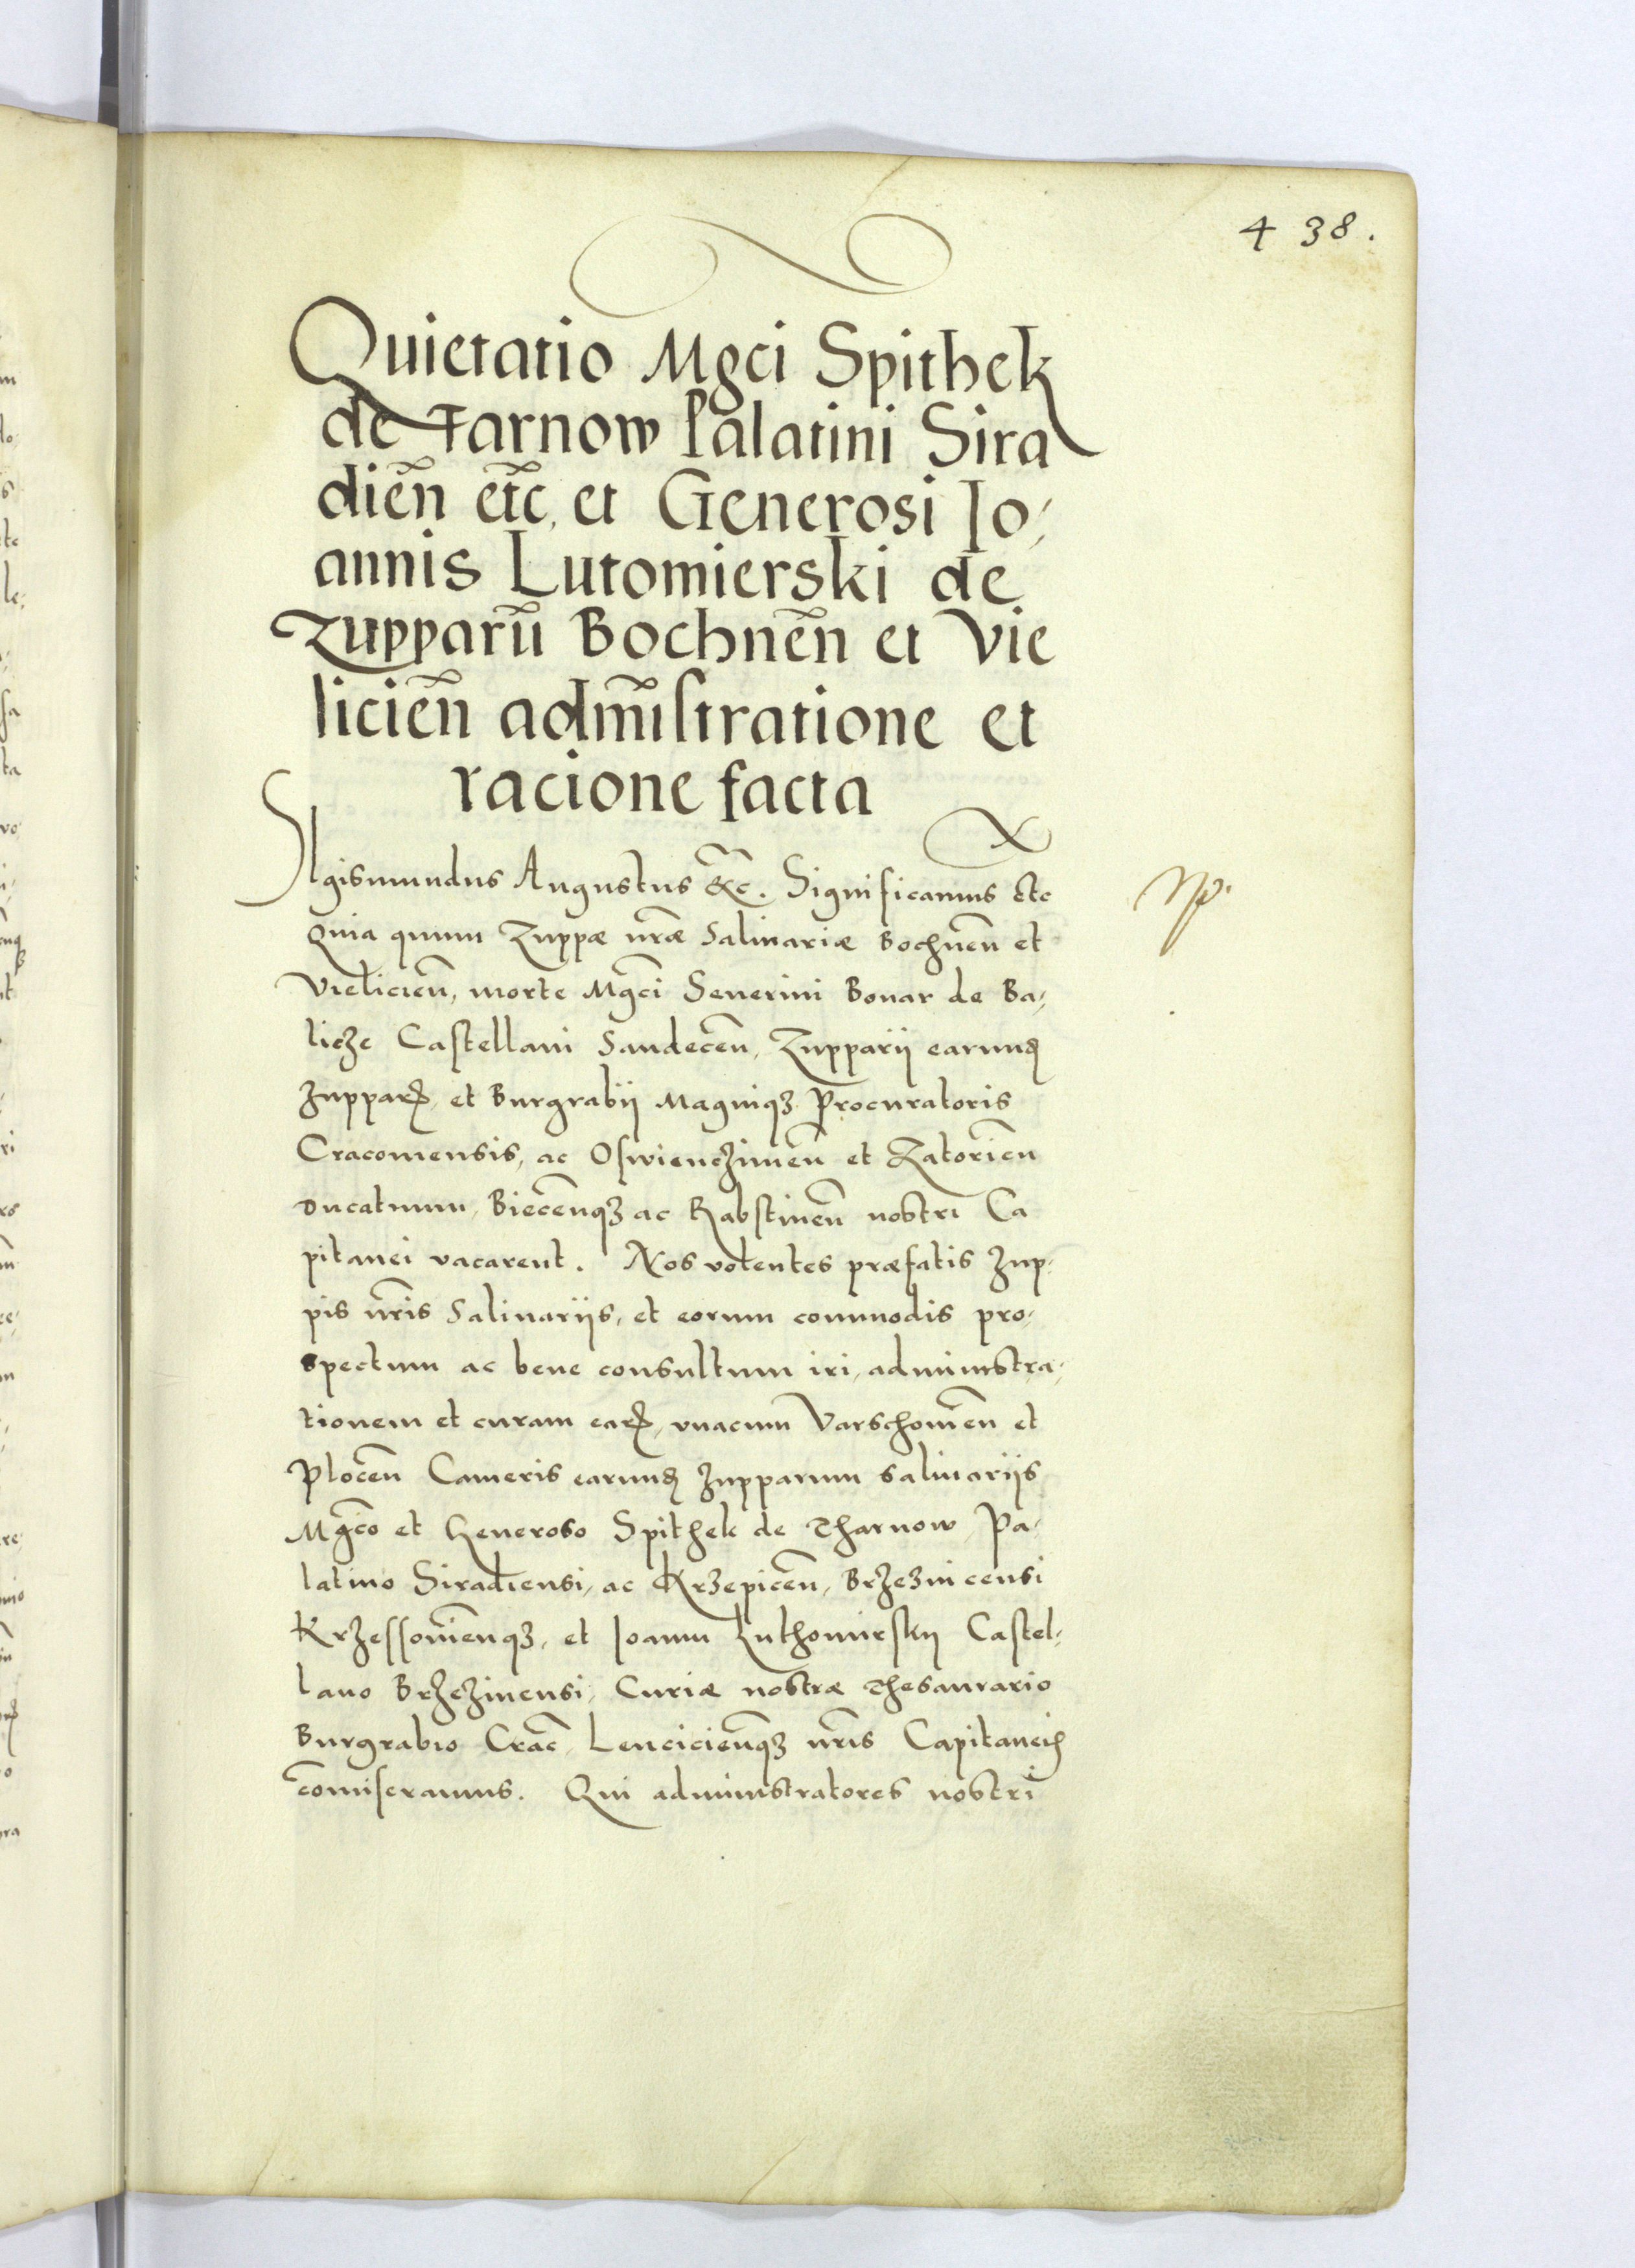 438.
Quietatio Mgci Spithek
de Tarnow Palatini Sira
dien̄ et̄c, et Generosi Io,
annis Lutomierski de
Zupparū Bochnen̄ et Vie
licien̄ adm̄istratione et
racione facta
SIgismundus Augustus &c̄. Significamus etc
Quia quum Zuppæ nr̄æ Salinariæ Bochnen̄ et
Vielicien̄, morte Mgc̄i Seuerini Bonar de Ba,
licze Castellani Sandecen̄, Zupparij earunđ
zupparꝝ, et Burgrabij Magniqꝫ Procuratoris
Cracouiensis, ac Oswienczimen̄ et Zatorien̄
Ducatuum, Biecen̄qꝫ ac Rabstinen̄ nostri Ca
pitanei vacarent. Nos volentes præfatis Zup,
pis nr̄is Salinariis, et eorum commodis pro,
spectum ac bene consultum iri, administra,
tionem et curam earꝝ, vnacum Varschouien̄ et
Plocen̄ Cameris earunđ zupparum salinariis
Mgc̄o et Generoso Spithek de Tharnow, Pa,
latino Siradiensi, ac Krzepicen̄, Brzeznicensi
Krzessouien̄qꝫ, et Ioanni Luthomirskij Castel,
lano Brzezinensi, Curiæ nostræ Thesaurario
Burgrabio Crac̄, Lencicien̄qꝫ nr̄is Capitaneis
com̄iseramus. Qui administratores nostri